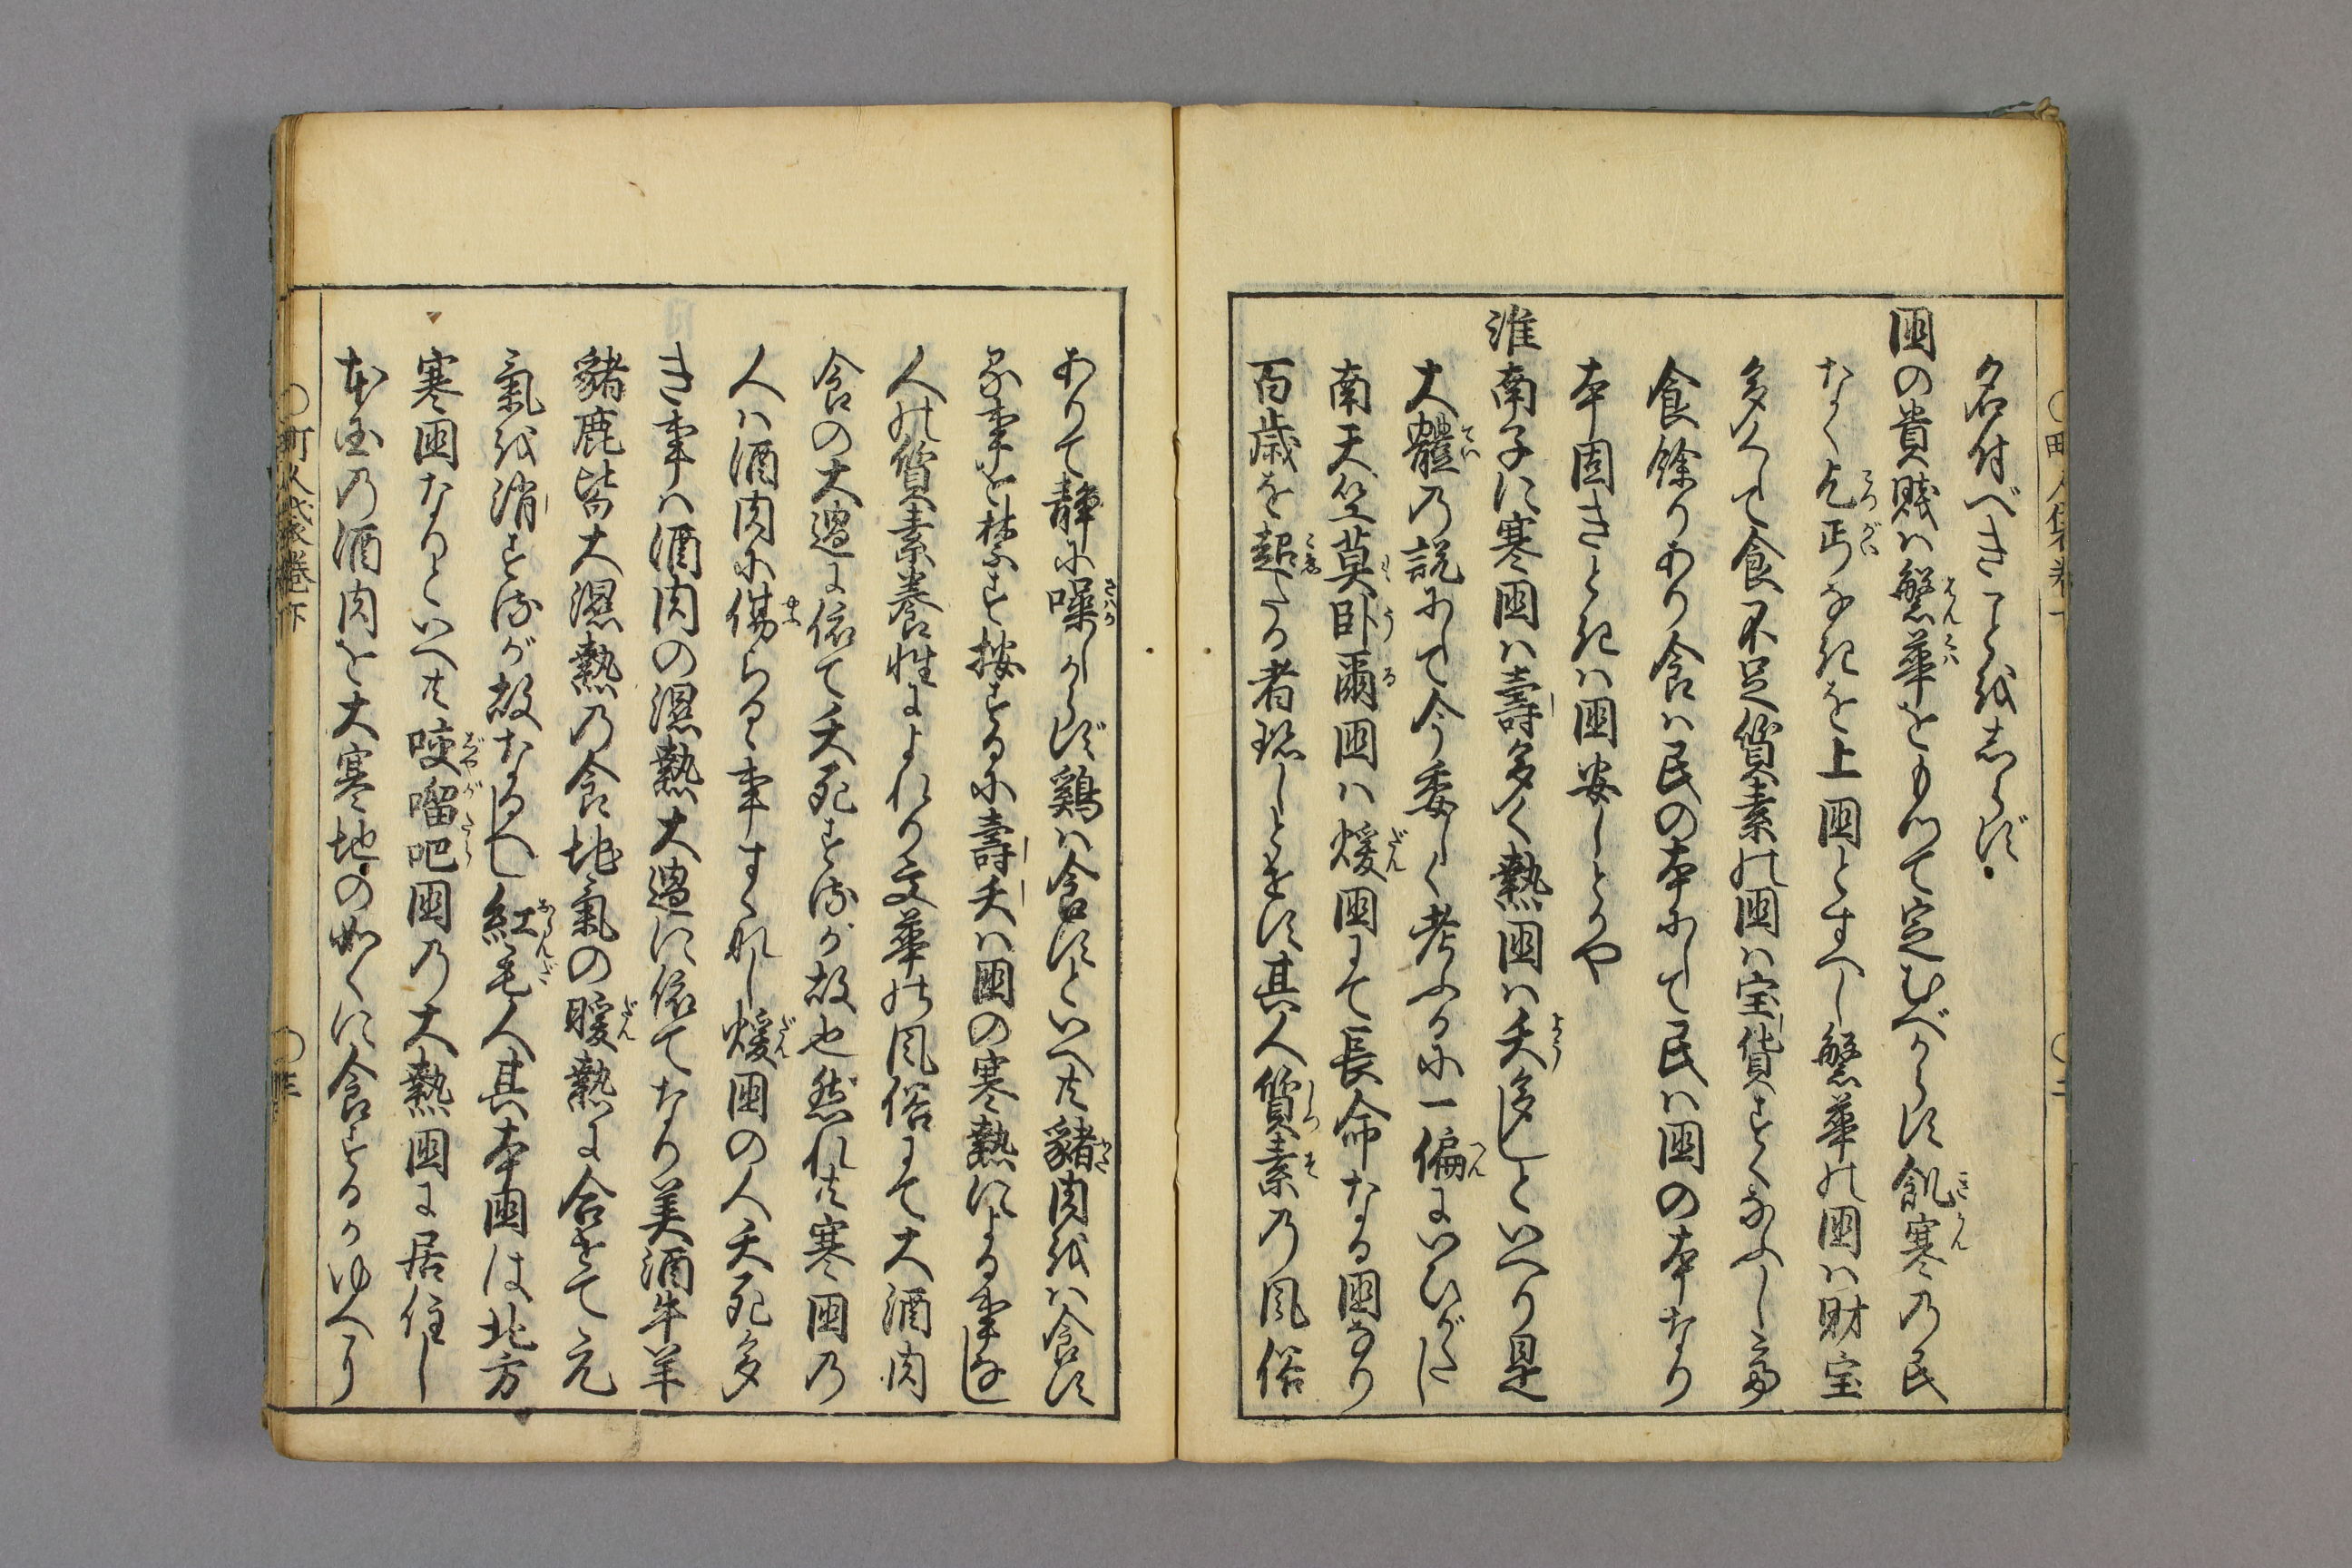 名付べきことをしらず
国の貴賤は繁華をもつて定むべからず飢寒の民
なく乞丐なきを上国とすべし繁華の国は財宝
多くして食不足質素の国は宝貨すくなふして
食餘りあり食は民の本にして民は国の本なり
本固きときは国安しとかや
淮南子に寒国は壽多く熱国は夭多しといへり是
大體の説にして今委しく考ふるに一偏にいひがたし
南天竺莫臥爾国は煖国にて長命なる国なり
百歳を超たる者珎しとせず其人質素の風俗
ありて静に噪しからず鶏は食すといへ共豬肉をば食す
る事を禁ず按ずるに壽夭は国の寒熱による事なし
人の質素養性によれり文華の風俗にて大酒肉
食の大過に依て夭死するが故也然れ共寒国の
人は酒肉に傷らるゝ事すくなし煖国の人夭死多
き事は酒肉の湿熱大過に依てなり美酒牛羊
豬鹿皆大湿熱の食地氣の暖熱に合せて元
氣を消するが故なるべし紅毛人其本国は北方
寒国なりといへ共咬𠺕吧国の大熱国に居住し
本国の酒肉を大寒地の如くに食するがゆへに
〇町人袋巻下
〇三
〇二